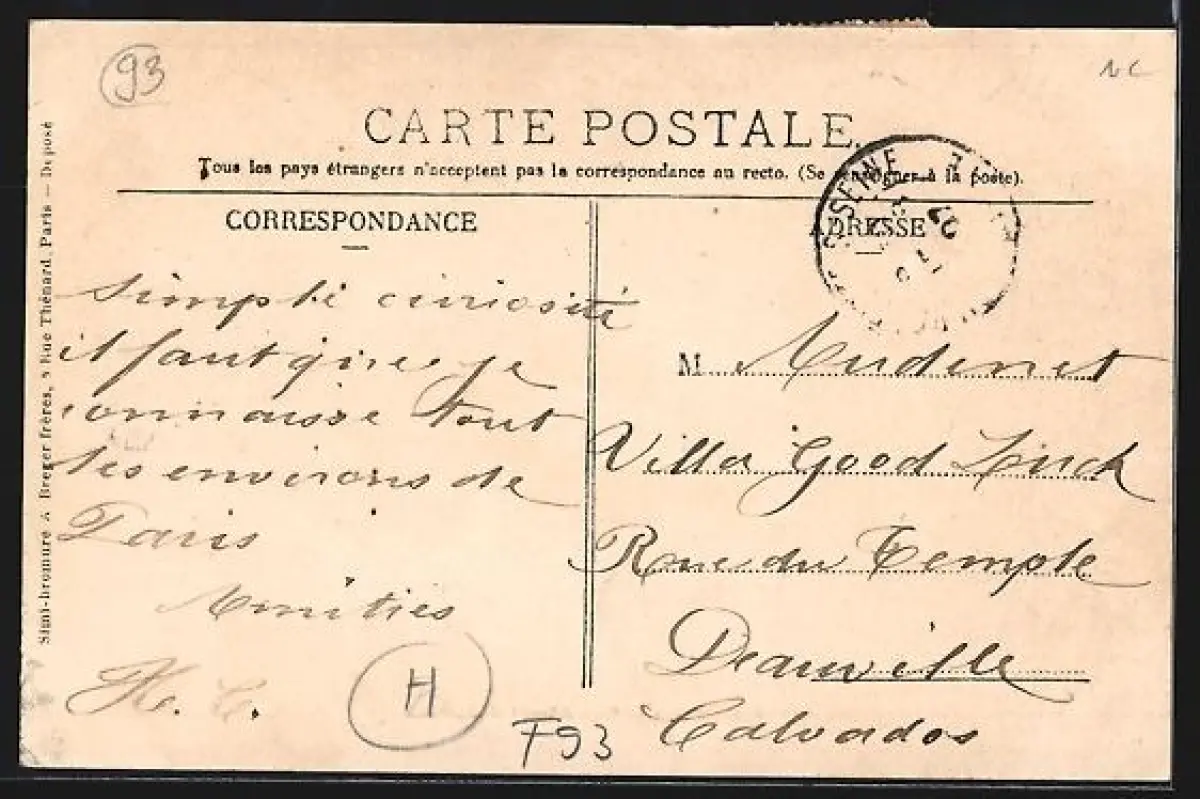 93
CARTE POSTALE
Tous les pays étrangers n'acceptent pas la correspondance au recto. (Se renseigner à la poste).
CORRESPONDANCE
ADRESSE
SEINE
Simple curiosité
il faut que je
connaisse tout
les environs de
Paris
Amitiés
H. C.
H
F93
M. Audenet
Villa Good Luck
Rue du Temple
Deauville
Calvados
Simi-bromure A. Breger frères, 9 Rue Thénard, Paris — Déposé